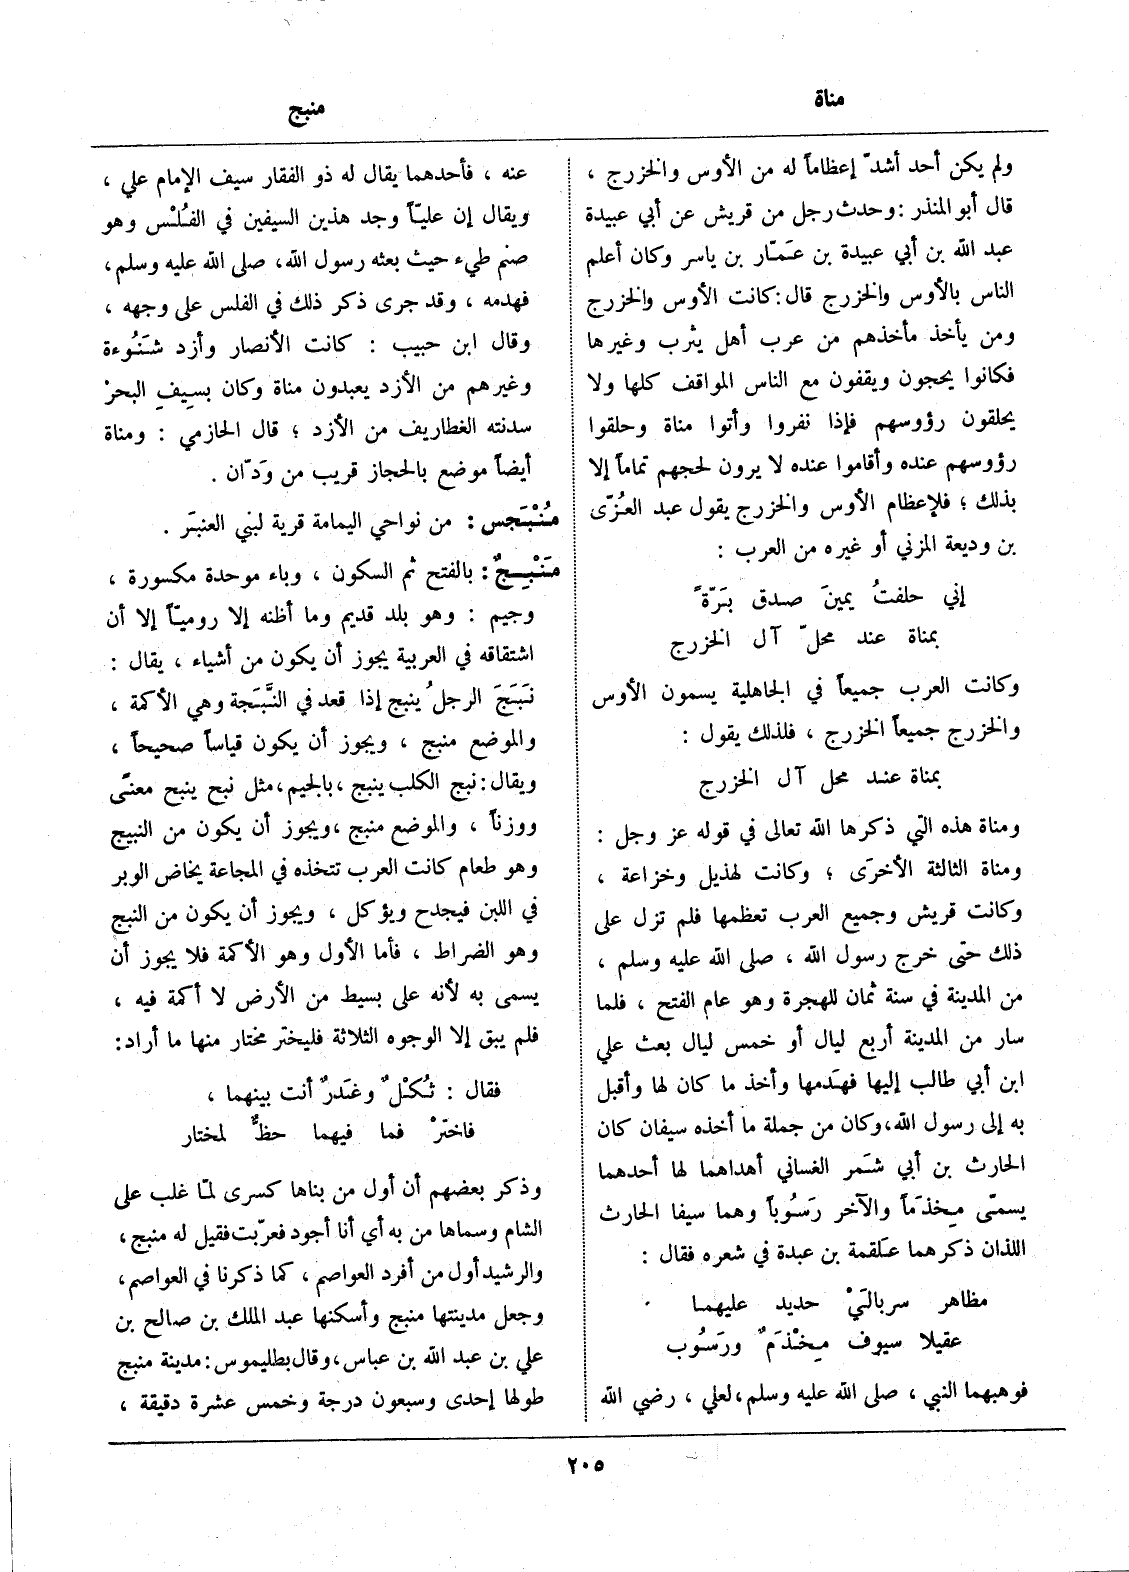 مناة
منبج
ولم يكن أحد أشدّ إعظاماً له من الأوس والخزرج ،
قال أبو المنذر : وحدث رجل من قريش عن أبي عبيدة
عبد الله بن أبي عبيدة بن عَمّار بن ياسر وكان أعلم
الناس بالأوس والخزرج قال : كانت الأوس والخزرج
ومن يأخذ مأخذهم من عرب أهل يثرب وغيرها
فكانوا يحجون ويقفون مع الناس المواقف كلها ولا
يحلقون رؤوسهم فإذا نفروا وأتوا مناة وحلقوا
رؤوسهم عنده وأقاموا عنده لا يرون لحجهم تماماً إلا
بذلك ؛ فلإعظام الأوس والخزرج يقول عبد العُزّى
بن وديعة المزني أو غيره من العرب :
إني حلفتُ يمينَ صدق بَرّةً
بمناة عند محلّ آل الخزرج
وكانت العرب جميعاً في الجاهلية يسمون الأوس
والخزرج جميعاً الخزرج ، فلذلك يقول :
بمناة عند محل آل الخزرج
ومناة هذه التي ذكرها الله تعالى في قوله عز وجل :
ومناة الثالثة الأخرَى ؛ وكانت لهذيل وخزاعة ،
وكانت قريش وجميع العرب تعظمها فلم تزل على
ذلك حتّى خرج رسول الله ، صلى الله عليه وسلم ،
من المدينة في سنة ثمان للهجرة وهو عام الفتح ، فلما
سار من المدينة أربع ليال أو خمس ليال بعث علي
ابن أبي طالب إليها فهَدمها وأخذ ما كان لها وأقبل
به إلى رسول الله، وكان من جملة ما أخذه سيفان كان
الحارث بن أبي شَمر الغساني أهداهما لها أحدهما
يسمّى مِخذَماً والآخر رَسُوباً وهما سيفا الحارث
اللذان ذكرهما عَلقمة بن عبدة في شعره فقال :
مظاهر سربالَيْ حديد عليهما
عقيلا سيوف مِخْذَمٌ ورَسُوب
فوهبهما النبي ، صلى الله عليه وسلم، لعلي ، رضي الله
عنه ، فأحدهما يقال له ذو الفقار سيف الإمام علي ،
ويقال إن عليّاً وجد هذين السيفين في الفُلْس وهو
صنم طيء حيث بعثه رسول الله، صلى الله عليه وسلم،
فهدمه ، وقد جرى ذكر ذلك في الفلس على وجهه ،
وقال ابن حبيب : كانت الأنصار وأزد شَنُوءة
وغيرهم من الأزد يعبدون مناة وكان بسِيفِ البحرْ
سدنته الغطاريف من الأزد ؛ قال الحازمي : ومناة
أيضاً موضع بالحجاز قريب من وَدّان .
مُنْبَجس : من نواحي اليمامة قرية لبني العنبَر .
مَنْبِجٌ : بالفتح ثم السكون ، وباء موحدة مكسورة ،
وجيم : وهو بلد قديم وما أظنه إلا روميّاً إلا أن
اشتقاقه في العربية يجوز أن يكون من أشياء ، يقال :
نَبَجَ الرجلُ ينبج إذا قعد في النَّبَجة وهي الأكمة ،
والموضع منبج ، ويجوز أن يكون قياساً صحيحاً ،
ويقال : نبج الكلب ينبج ، بالجيم، مثل نبح ينبح معنًى
ووزناً ، والموضع منبج ، ويجوز أن يكون من النبيج
وهو طعام كانت العرب تتخذه في المجاعة يخاض الوبر
في اللبن فيجدح ويؤكل ، ويجوز أن يكون من النبج
وهو الضراط ، فأما الأول وهو الأكمة فلا يجوز أن
يسمى به لأنه على بسيط من الأرض لا أكمة فيه ،
فلم يبق إلا الوجوه الثلاثة فليختر مختار منها ما أراد :
فقال : ثُكْلٌ وغَدرٌ أنت بينهما ،
فاختَرْ فما فيهما حظٌّ لمختار
وذكر بعضهم أن أول من بناها كسرى لمّا غلب على
الشام وسماها من به أي أنا أجود فعرّبت فقيل له منبج ،
والرشيد أول من أفرد العواصم ، كما ذكرنا في العواصم ،
وجعل مدينتها منبج وأسكنها عبد الملك بن صالح بن
علي بن عبد الله بن عباس ، وقال بطليموس : مدينة منبج
طولها إحدى وسبعون درجة وخمس عشرة دقيقة ،
٢٠٥